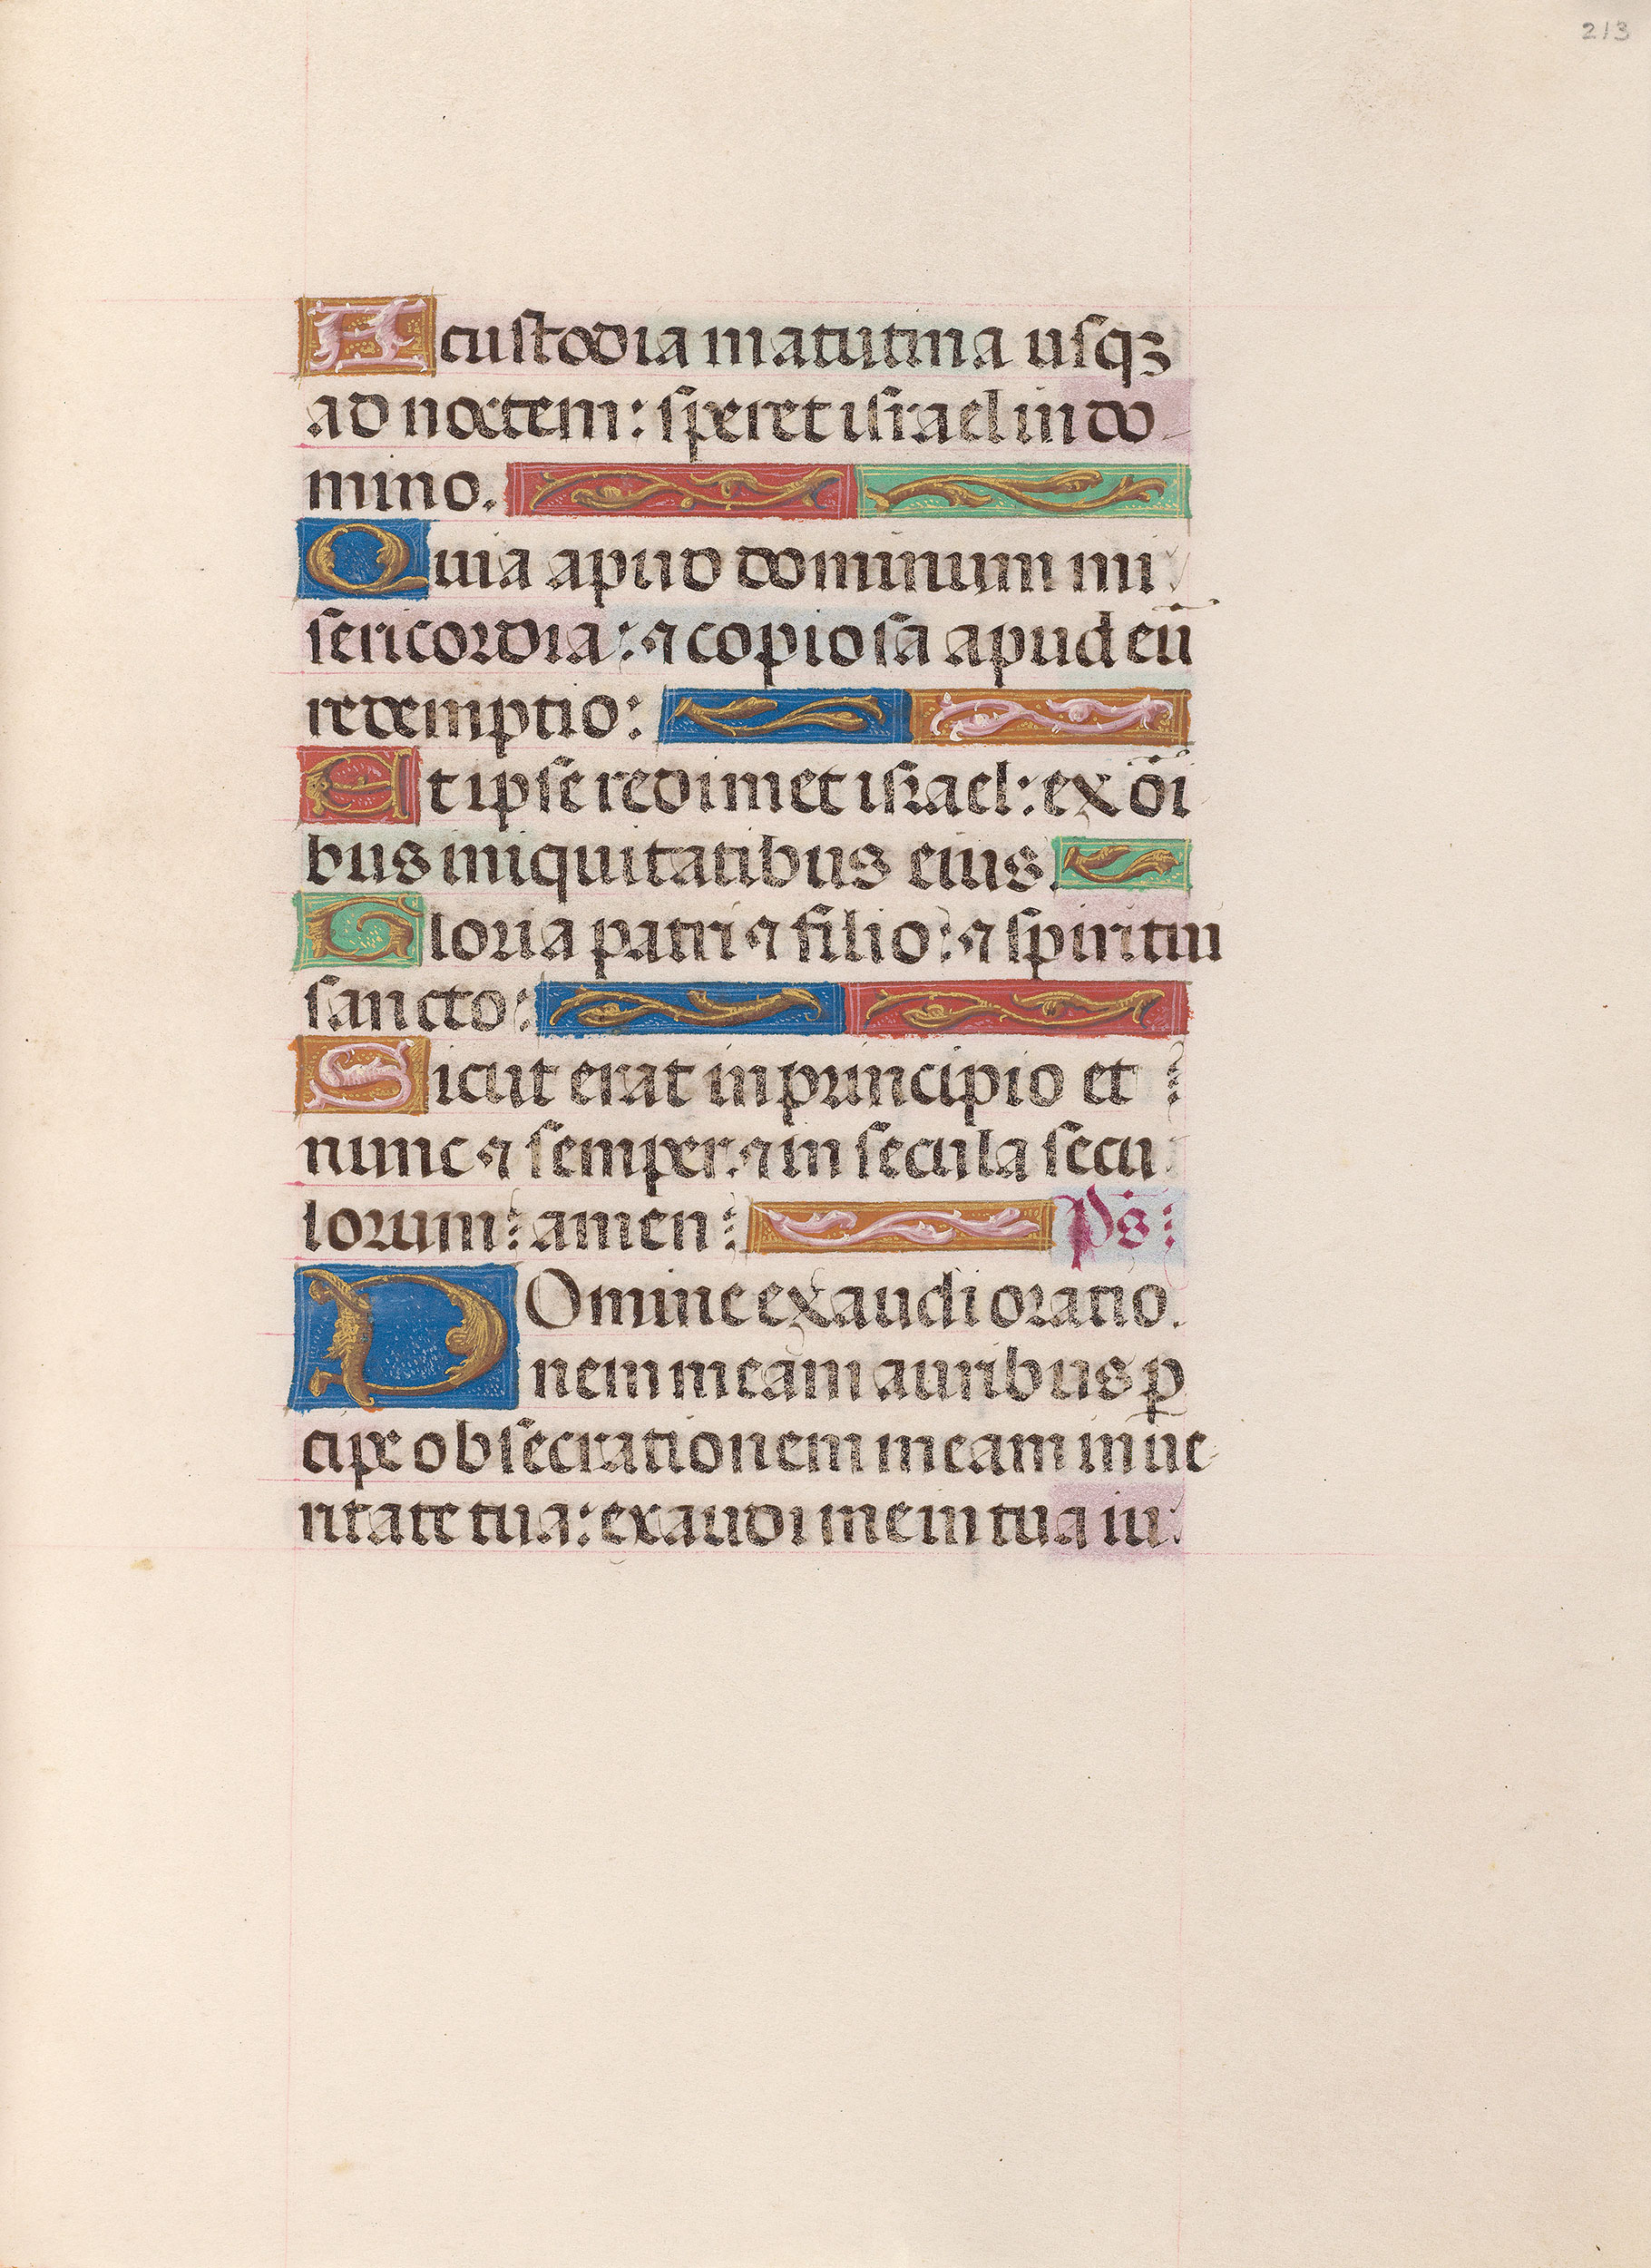 213
A custodia matutina usqꝫ
ad noctem: speret israel in do
mino.
Quia apud dominum mi
sericordia: ⁊ copiosa apud eū
redemptio:
Et ipse redimet israel: ex oī
bus iniquitatibus eius.
Gloria patri ⁊ filio: ⁊ spiritui
sancto:
Sicut erat in principio et
nunc ⁊ semper. ⁊ in secula secu
lorum: amen: Ps:
DOmine exaudi oratio.
nem meam auribus ꝑ
cipe obsecrationem meam in ue
ritate tua: exaudi me in tua iu: